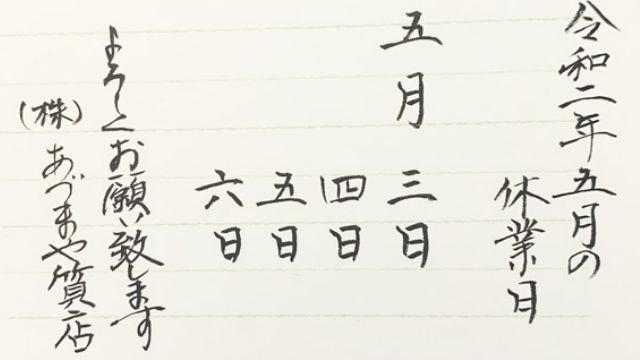 令和二年五月の
休業日
五月
三日
四日
五日
六日
よろしくお願い致します
(株)あづまや質店